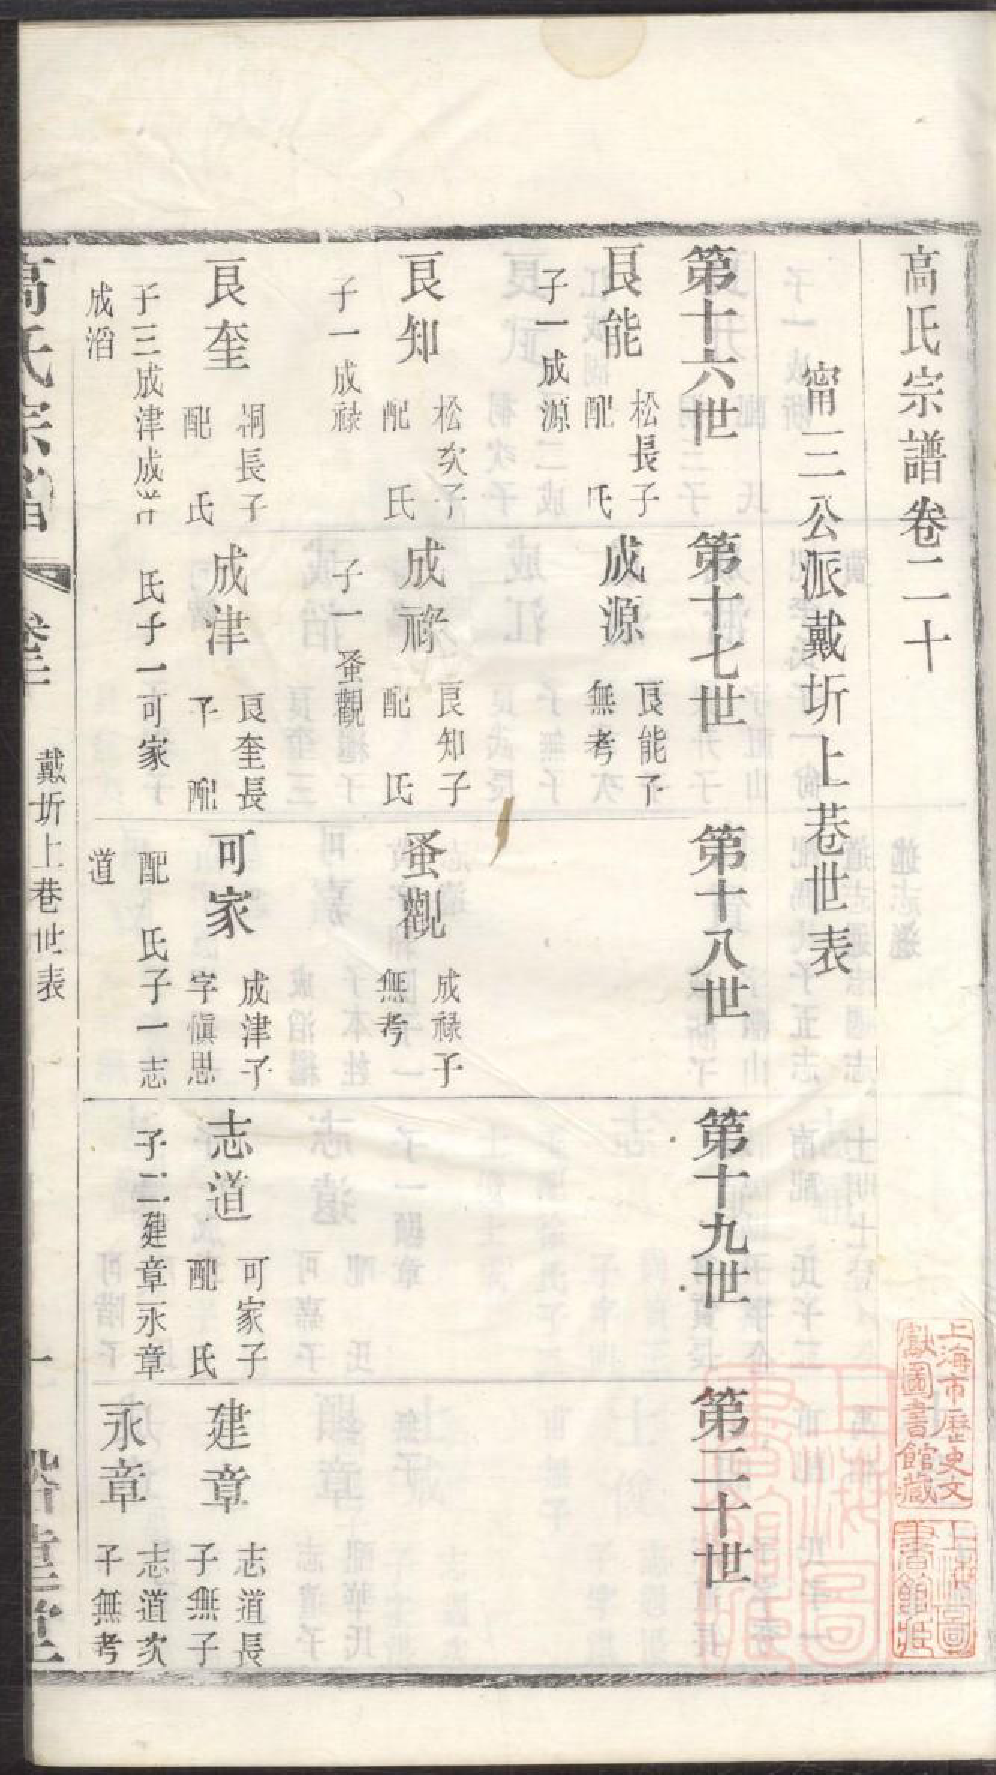 高氏宗譜卷二十
甯三公派戴圻上巷世表
第十六世
第十七世
第十八世
第十九世
第二十世
良能
松長子
配 氏
子一成源
成源
良能子
無考
良知
松次子
配 氏
子一成祿
成祿
良知子
配 氏
子一蚤觀
蚤觀
成祿子
無考
良奎
桐長子
配 氏
子三成津成
成滔
成津
良奎長
子 配
氏子一可家
可家
成津子
字愼思
配 氏子一志
道
志道
可家子
配 氏
子二建章永章
建章
志道長
子無子
永章
志道次
子無考
高氏宗譜
戴圻上巷世表
一
上海市歷史文
獻圖書館藏
上海圖
書館藏